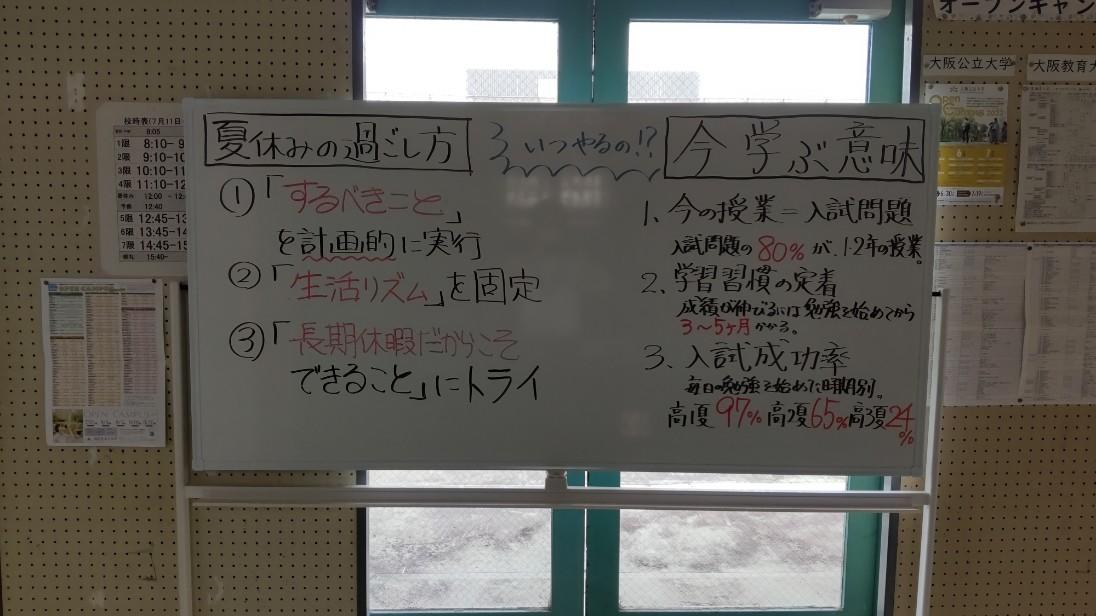 夏休みの過ごし方
①「するべきこと」
を計画的に実行
②「生活リズム」を固定
③「長期休暇だからこそ
できること」にトライ
いつやるの!?
今学ぶ意味
1、今の授業=入試問題
入試問題の80%が、1・2年の授業。
2、学習習慣の定着
成績が伸びるには勉強を始めてから
3~5ヶ月かかる。
3、入試成功率
毎日の勉強を始めた時期別。
高1夏97% 高2夏65% 高3夏24%
校時表(7月11日
8:05
1限 8:10-
2限 9:10-10
3限 10:10-11
4限 11:10-12
12:00
12:40
5限 12:45-13
6限 13:45-14
7限 14:45-15
15:40-
オープンキャン
大阪公立大学
大阪教育大
OPEN CAMPUS
OPEN CAMPUS